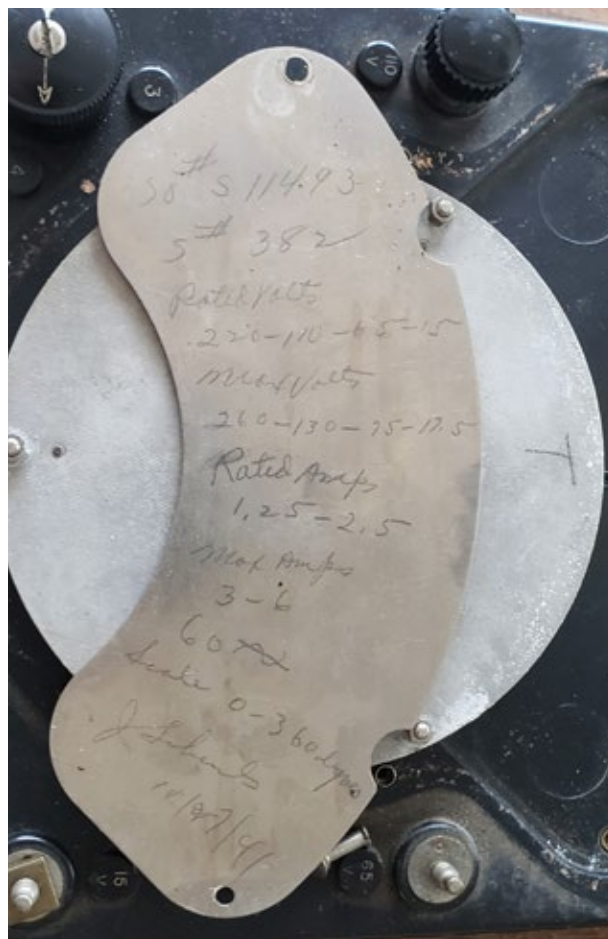 3
110 V
So# S 11493
S# 382
Rated Volts
220-110-65-15
Max Volts
260-130-75-17.5
Rated Amps
1.25-2.5
Max Amps
3-6
60
Scale 0-360 degrees
J
T
15 V
65 V